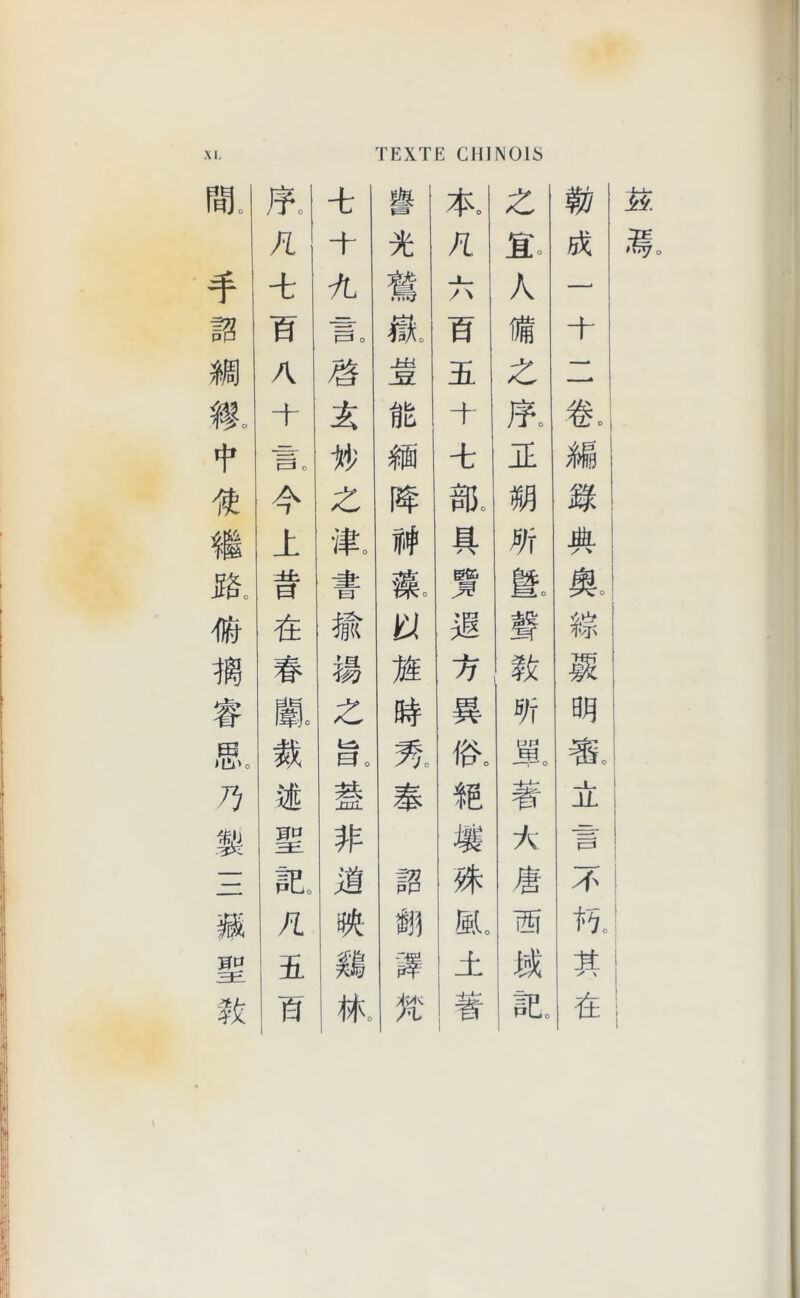 XL
TEXTE CHINOIS
間。 手詔綢繆。中使繼路。俯摛睿思。乃製三藏聖敎
序。凡七百八十言。今上昔在春闈。裁述聖記。凡五百
七十九言。啓玄妙之津。書揄揚之旨。葢非道映鷄林。
譽光鷲嶽。豈能緬降神藻。以旌時秀。奉 詔翻譯梵
本。凡六百五十七部。具覽遐方異俗。絕壤殊風。土著
之宜。人備之序。正朔所曁。聲敎所單。著大唐西域記。
勒成一十二卷。編錄典奧。綜覈明審。立言不朽。其在
茲焉。